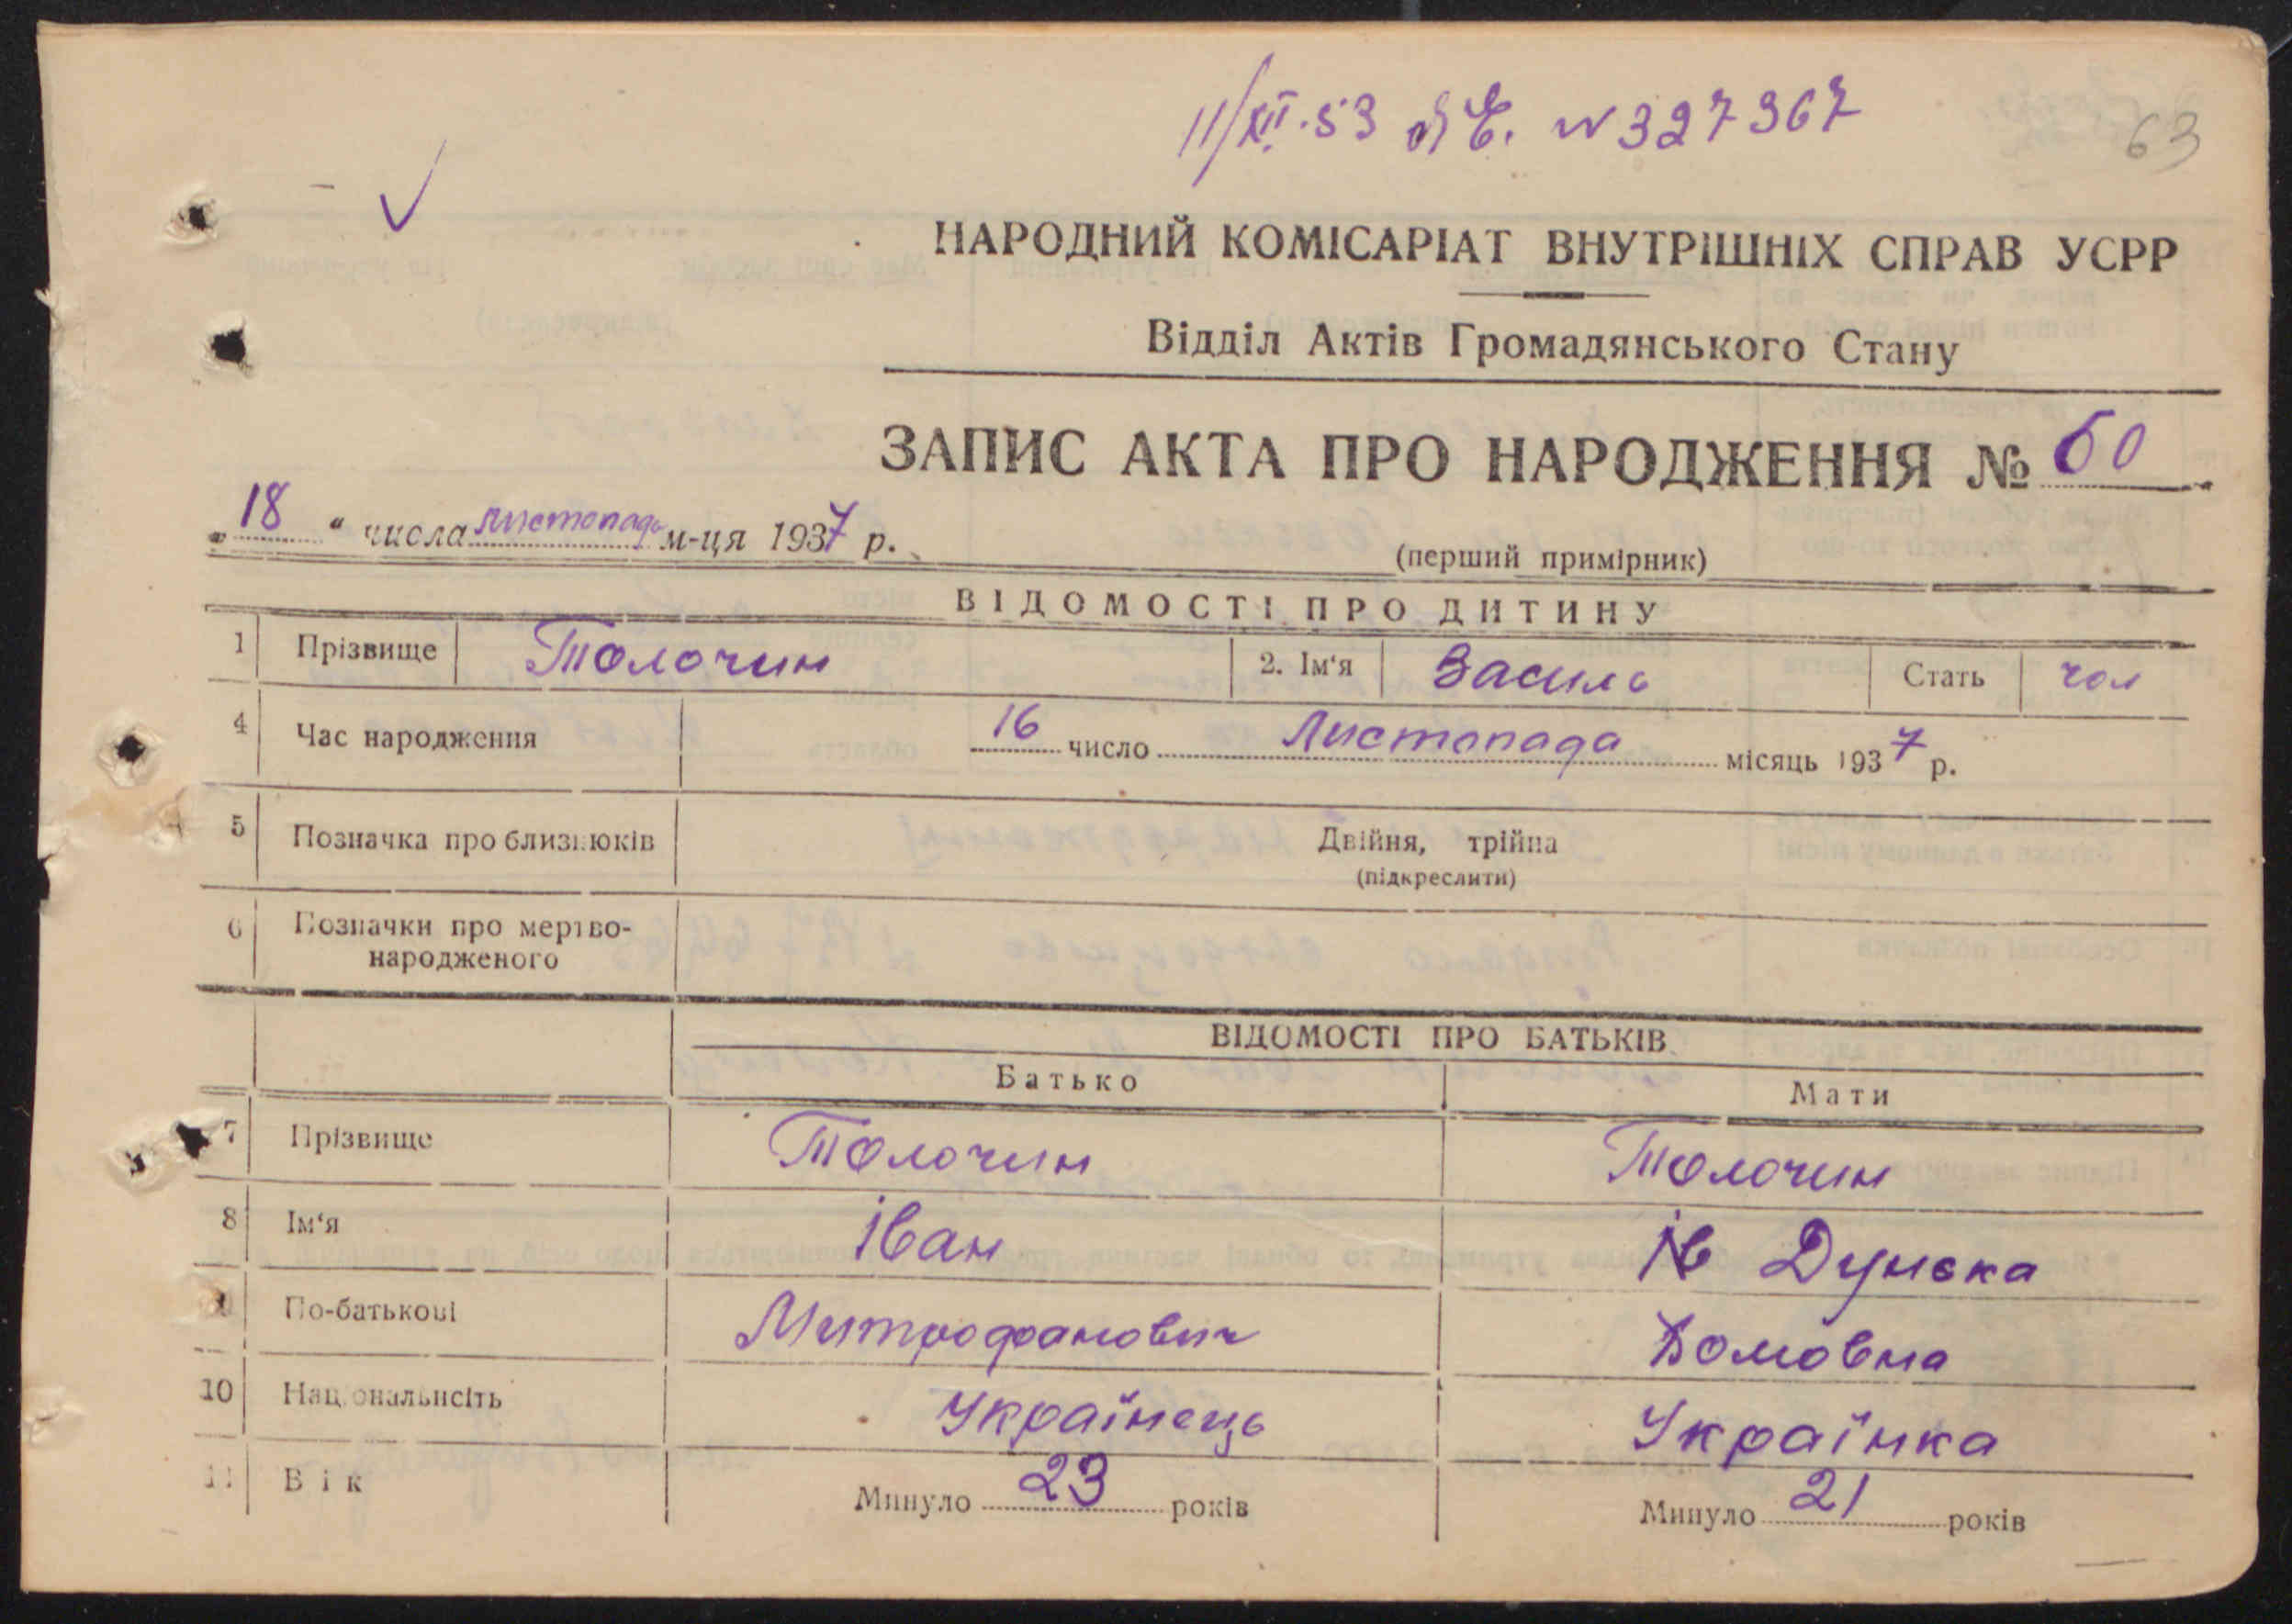 11/XII.53 ЯЄ. N 327367
63
НАРОДНИЙ КОМІСАРІАТ ВНУТРІШНІХ СПРАВ УСРР
Відділ Актів Громадянського Стану
ЗАПИС АКТА ПРО НАРОДЖЕННЯ № 60
„18“ числа листопада м-ця 1937 р.
(перший примірник)
ВІДОМОСТІ ПРО ДИТИНУ
1 Прізвище Толочин 2. Ім‘я Василь Стать чол
4 Час народження 16 число Листопада місяць 1937 р.
5 Позначка про близнюків Двійня, трійна
(підкреслити)
6 Позначки про мертво-
народженого
ВІДОМОСТІ ПРО БАТЬКІВ
Батько Мати
7 Прізвище Толочин Толочин
8 Ім‘я Іван Ів Дунєка
9 По-батькові Митрофанович Хомовна
10 Національнсіть Українець Українка
11 Вік Минуло 23 років Минуло 21 років